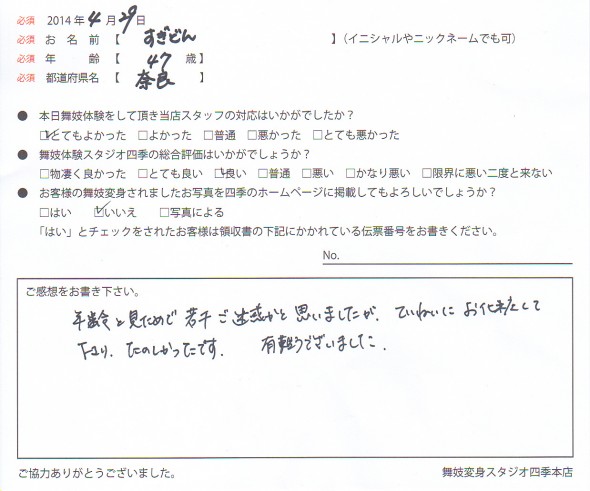 必須 2014年4月29日
必須 お名前【 すぎどん 】(イニシャルやニックネームでも可)
必須 年齢【 47 歳】
必須 都道府県名【 奈良 】
● 本日舞妓体験をして頂き当店スタッフの対応はいかがでしたか?
☑とてもよかった □よかった □普通 □悪かった □とても悪かった
● 舞妓体験スタジオ四季の総合評価はいかがでしょうか?
□物凄く良かった □とても良い ☑良い □普通 □悪い □かなり悪い □限界に悪い二度と来ない
● お客様の舞妓変身されましたお写真を四季のホームページに掲載してもよろしいでしょうか?
□はい ☑いいえ □写真による
「はい」とチェックをされたお客様は領収書の下記にかかれている伝票番号をお書きください。
No.
ご感想をお書き下さい。
年齢と見ためで 若干ご迷惑かと思いましたが、ていねいに お化粧して
下さり、たのしかったです。 有難うございました。
ご協力ありがとうございました。
舞妓変身スタジオ四季本店